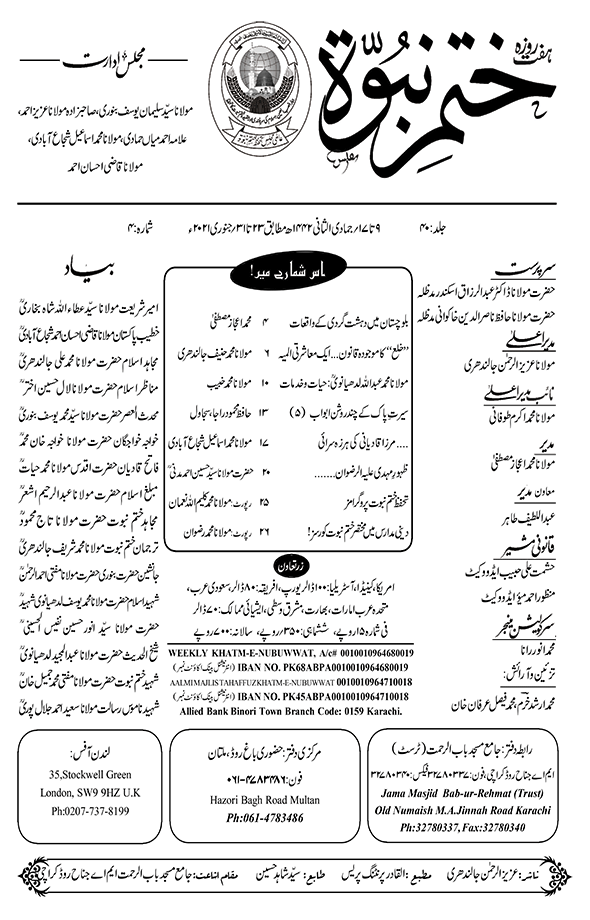 ہفت روزہ
ختم نبوۃ
مجلس ادارت
مولانا سید سلیمان یوسف بنوری، صاحبزادہ مولانا عزیز احمد،
علامہ احمد میاں حمادی، مولانا محمد اسماعیل شجاع آبادی،
مولانا قاضی احسان احمد
جلد: ۴۰
۹ تا ۱۷/ جمادی الثانی ۱۴۴۲ھ مطابق ۲۳ تا ۳۱/ جنوری ۲۰۲۱ء
شمارہ: ۴
سرپرست
حضرت مولانا ڈاکٹر عبدالرزاق اسکندر مدظلہ
حضرت مولانا حافظ ناصر الدین خاکوانی مدظلہ
مدیر اعلیٰ
مولانا عزیز الرحمٰن جالندھری
نائب مدیر اعلیٰ
مولانا محمد اکرم طوفانی
مدیر
مولانا محمد اعجاز مصطفیٰ
معاون مدیر
عبداللطیف طاہر
قانونی مشیر
حشمت علی حبیب ایڈووکیٹ
منظور احمد میؤ ایڈووکیٹ
سرکولیشن منیجر
محمد انور رانا
تزئین و آرائش:
محمد ارشد خرم، محمد فیصل عرفان خان
اس شمارے میں!
بلوچستان میں دہشت گردی کے واقعات ۴ محمد اعجاز مصطفیٰ
”خلع“ کا موجودہ قانون... ایک معاشرتی المیہ ۶ مولانا محمد حنیف جالندھری
مولانا محمد عبداللہ لدھیانویؒ: حیات و خدمات ۱۰ مولانا محمد خبیب
سیرت پاک کے چند روشن ابواب (۵) ۱۳ حافظ محمود راجا، سجاول
.... مرزا قادیانی کی ہرزہ سرائی ۱۷ مولانا محمد اسماعیل شجاع آبادی
ظہور مہدی علیہ الرضوان...... ۲۰ حضرت مولانا سید حسین احمد مدنیؒ
تحفظ ختم نبوت پروگرامز ۲۵ رپورٹ: مولانا محمد کلیم اللہ نعمان
دینی مدارس میں مختصر ختم نبوت کورسز! ۲۶ رپورٹ: مولانا محمد رضوان
زر تعاون
امریکا، کینیڈا، آسٹریلیا: ۱۰۰ ڈالر یورپ، افریقہ: ۸۰ ڈالر، سعودی عرب،
متحدہ عرب امارات، بھارت، مشرق وسطیٰ، ایشیائی ممالک: ۷۰ ڈالر
فی شمارہ ۱۵ روپے، ششماہی: ۳۵۰ روپے، سالانہ: ۷۰۰ روپے
WEEKLY KHATM-E-NUBUWWAT, A/c# 0010010964680019
IBAN NO. PK68ABPA0010010964680019 (انٹرنیشنل بینک اکاؤنٹ نمبر)
AALMI MAJLIS TAHAFFUZ KHATM-E-NUBUWWAT 0010010964710018
IBAN NO. PK45ABPA0010010964710018 (انٹرنیشنل بینک اکاؤنٹ نمبر)
Allied Bank Binori Town Branch Code: 0159 Karachi.
بیاد
امیر شریعت مولانا سید عطاء اللہ شاہ بخاریؒ
خطیب پاکستان مولانا قاضی احسان احمد شجاع آبادیؒ
مجاہد اسلام حضرت مولانا محمد علی جالندھریؒ
مناظر اسلام حضرت مولانا لال حسین اخترؒ
محدث العصر حضرت مولانا سید محمد یوسف بنوریؒ
خواجہ خواجگان حضرت مولانا خواجہ خان محمدؒ
فاتح قادیان حضرت اقدس مولانا محمد حیاتؒ
مبلغ اسلام حضرت مولانا عبدالرحیم اشعرؒ
مجاہد ختم نبوت حضرت مولانا تاج محمودؒ
ترجمان ختم نبوت حضرت مولانا محمد شریف جالندھریؒ
جانشین حضرت بنوری حضرت مولانا مفتی احمد الرحمٰنؒ
شہید اسلام حضرت مولانا محمد یوسف لدھیانوی شہیدؒ
حضرت مولانا سید انور حسین نفیس الحسینیؒ
شیخ الحدیث حضرت مولانا عبدالمجید لدھیانویؒ
شہید ختم نبوت حضرت مولانا مفتی محمد جمیل خانؒ
شہید ناموس رسالت مولانا سعید احمد جلال پوریؒ
رابطہ دفتر: جامع مسجد باب الرحمت (ٹرسٹ)
ایم اے جناح روڈ کراچی، فون: ۳۲۷۸۰۳۳۷ فیکس: ۳۲۷۸۰۳۴۰
Jama Masjid Bab-ur-Rehmat (Trust)
Old Numaish M.A.Jinnah Road Karachi
Ph:32780337, Fax:32780340
مرکزی دفتر: حضوری باغ روڈ، ملتان
فون: ۰۶۱-۴۷۸۳۴۸۶
Hazori Bagh Road Multan
Ph:061-4783486
لندن آفس:
35,Stockwell Green
London, SW9 9HZ U.K
Ph:0207-737-8199
ناشر: عزیز الرحمٰن جالندھری مطبع: القادر پرنٹنگ پریس طابع: سید شاہد حسین مقام اشاعت: جامع مسجد باب الرحمت ایم اے جناح روڈ کراچی